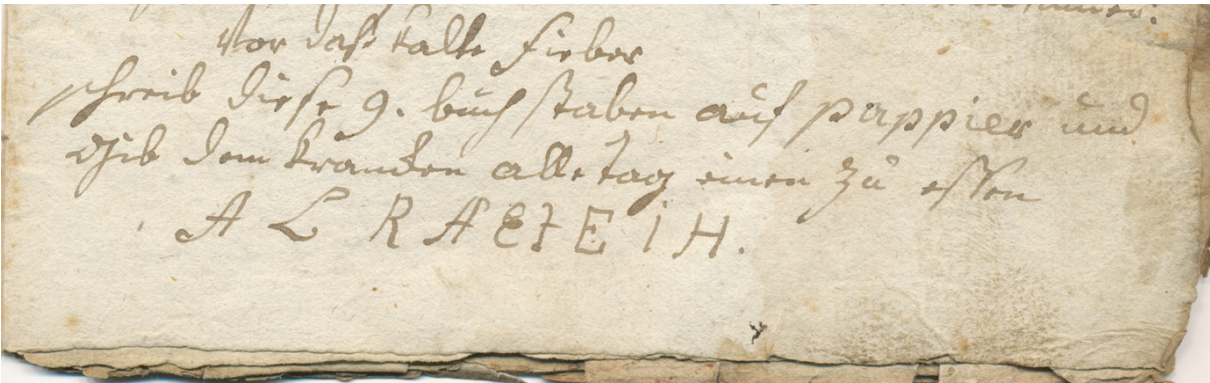 Vor daß kalte fieber
schreib diese 9. buchstaben auf pappier und
Gib dem kranken alle tag einen zu essen
A L R A E
E I H.